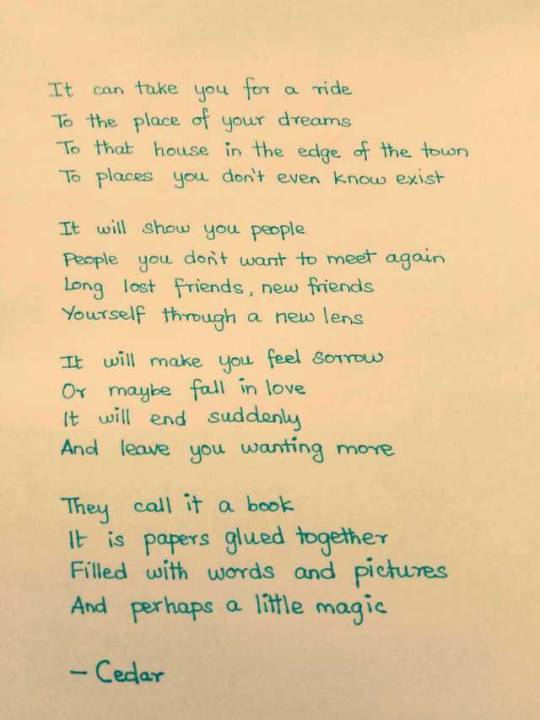 It can take you for a ride
To the place of your dreams
To that house in the edge of the town
To places you don't even know exist
It will show you people
People you don't want to meet again
Long lost friends, new friends
Yourself through a new lens
It will make you feel sorrow
Or maybe fall in love
It will end suddenly
And leave you wanting more
They call it a book
It is papers glued together
Filled with words and pictures
And perhaps a little magic
- Cedar